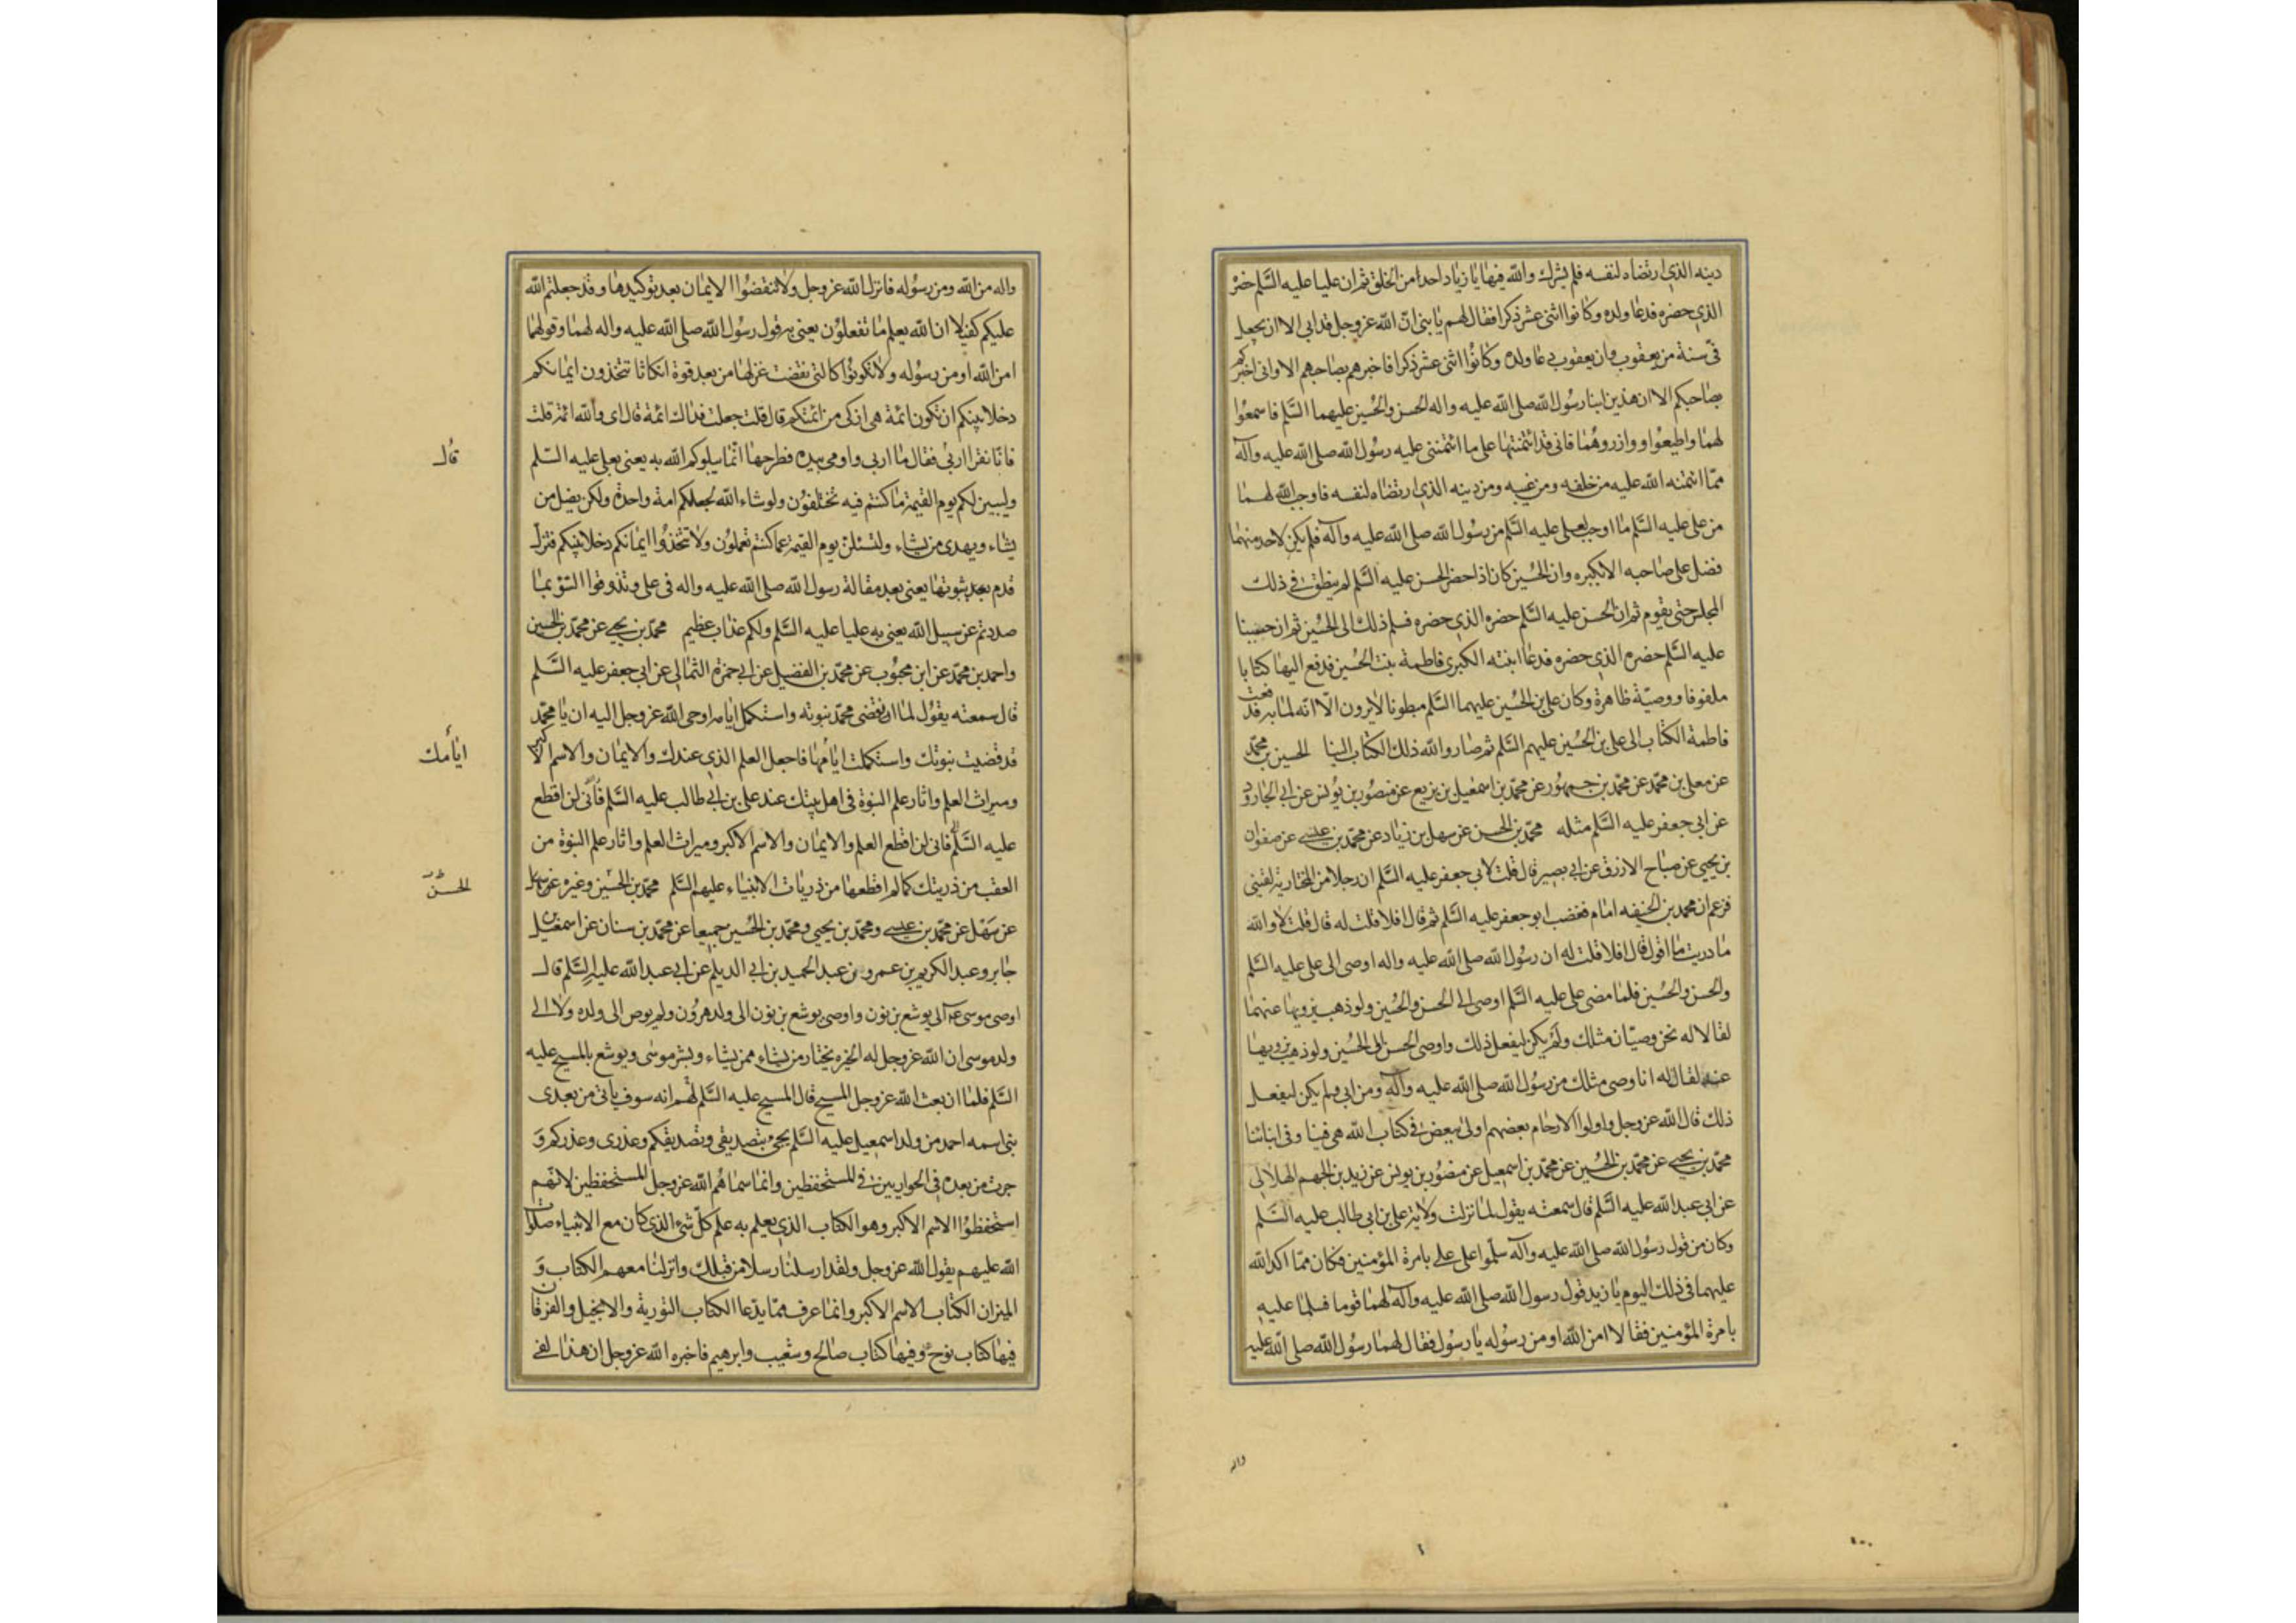 دينه الذى ارتضاه لنفسه فلم يشرك والله فيها يا زياد احدا من الخلق ثم ان عليا عليه السلم حضره
الذى حضره فدعا ولده وكانوا اثنى عشر ذكرا فقال لهم يا بنى ان الله عز وجل قد ابى الا ان يجعل
فىّ سنة من يعقوب وان يعقوب دعا ولده وكانوا اثنى عشر ذكرا فاخبرهم بصاحبهم الا وانى اخبركم
بصاحبكم الا ان هذين ابنا رسول الله صلى الله عليه واله الحسن والحسين عليهما السلم فاسمعوا
لهما واطيعوا ووازروهما فانى قد ائتمنتهما على ما ائتمننى عليه رسول الله صلى الله عليه وآله
مما ائتمنه الله عليه من خلقه ومن غيبه ومن دينه الذى ارتضاه لنفسه فاوجب الله لهما
من على عليه السلم ما اوجب لعلى عليه السلم من رسول الله صلى الله عليه وآله فلم يكن لاحد منهما
فضل على صاحبه الا بكبره وان الحسين كان اذا حضر الحسن عليه السلم لم ينطق فى ذلك
المجلس حتى يقوم ثم ان الحسن عليه السلم حضره الذى حضره فسلم ذلك الى الحسين ثم ان حسينا
عليه السلم حضره الذى حضره فدعا ابنته الكبرى فاطمة بنت الحسين فدفع اليها كتابا
ملفوفا ووصية ظاهرة وكان على بن الحسين عليهما السلم مبطونا لا يرون الا انه لما به فدفعت
فاطمة الكتاب الى على بن الحسين عليهم السلم ثم صار والله ذلك الكتاب الينا الحسين بن محمد
عن معلى بن محمد عن محمد بن جمهور عن محمد بن اسمعيل بن بزيع عن منصور بن يونس عن ابى الجارود
عن ابى جعفر عليه السلم مثله محمد بن الحسن عن سهل بن زياد عن محمد بن عيسى عن صفوان
بن يحيى عن صباح الازرق عن ابى بصير قال قلت لابى جعفر عليه السلم ان رجلا من المختارية لقينى
فزعم ان محمد بن الحنفيه امام فغضب ابو جعفر عليه السلم ثم قال افلا قلت له قال قلت لا والله
ما دريت ما اقول قال افلا قلت له ان رسول الله صلى الله عليه واله اوصى الى على عليه السلم
والحسن والحسين فلما مضى على عليه السلم اوصى الى الحسن والحسين ولو ذهب يزويها عنهما
لقالا له نحن وصيان مثلك ولم يكن ليفعل ذلك واوصى الحسن الى الحسين ولو ذهب يزويها
عنه لقال له انا وصى مثلك من رسول الله صلى الله عليه وآله ومن ابى ولم يكن ليفعل
ذلك قال الله عز وجل واولوا الارحام بعضهم اولى ببعض فى كتاب الله هى فينا وفى ابنائنا
محمد بن يحيى عن محمد بن الحسين عن محمد بن اسمعيل عن منصور بن يونس عن زيد بن الجهم الهلالى
عن ابى عبد الله عليه السلم قال سمعته يقول لما نزلت ولاية على بن ابى طالب عليه السلم
وكان من قول رسول الله صلى الله عليه وآله سلموا على على بامرة المؤمنين فكان مما اكد الله
عليهما فى ذلك اليوم يا زيد قول رسول الله صلى الله عليه وآله لهما قوما فسلما عليه
بامرة المؤمنين فقالا امن الله او من رسوله يا رسول فقال لهما رسول الله صلى الله عليه
واله
واله من الله ومن رسوله فانزل الله عز وجل ولا تنقضوا الايمان بعد توكيدها وقد جعلتم الله
عليكم كفيلا ان الله يعلم ما تفعلون يعنى به قول رسول الله صلى الله عليه واله لهما وقولهما
امن الله او من رسوله ولا تكونوا كالتى نقضت غزلها من بعد قوة انكاثا تتخذون ايمانكم
دخلا بينكم ان تكون ائمة هى ازكى من ائمتكم قال قلت جعلت فداك ائمة قال اى والله ائمة قلت
فانا نقرا اربى فقال ما اربى واومى بيده فطرحها انما يبلوكم الله به يعنى بعلى عليه السلم
قال
وليبين لكم يوم القيمة ما كنتم فيه تختلفون ولو شاء الله لجعلكم امة واحدة ولكن يضل من
يشاء ويهدى من يشاء ولتسئلن يوم القيمة عما كنتم تعملون ولا تتخذوا ايمانكم دخلا بينكم فتزل
قدم بعد ثبوتها يعنى بعد مقالة رسول الله صلى الله عليه واله فى على وتذوقوا السوء بما
صددتم عن سبيل الله يعنى به عليا عليه السلم ولكم عذاب عظيم محمد بن يحيى عن محمد بن الحسين
واحمد بن محمد عن ابن محبوب عن محمد بن الفضيل عن ابى حمزة الثمالى عن ابى جعفر عليه السلم
قال سمعته يقول لما ان قضى محمد نبوته واستكمل ايامه اوحى الله عز وجل اليه ان يا محمد
قد قضيت نبوتك واستكملت ايامها فاجعل العلم الذى عندك والايمان والاسم الاكبر
ايامك
وميراث العلم واثار علم النبوة فى اهل بيتك عند على بن ابى طالب عليه السلم فأنى لن اقطع
عليه السلم فانى لن اقطع العلم والايمان والاسم الاكبر وميراث العلم واثار علم النبوة من
العقب من ذريتك كما لم اقطعها من ذريات الانبياء عليهم السلم محمد بن الحسين وغيره عن سهل
الحسن
عن سهل عن محمد بن عيسى ومحمد بن يحيى ومحمد بن الحسين جميعا عن محمد بن سنان عن اسمعيل بن
جابر وعبد الكريم بن عمرو عن عبد الحميد بن ابى الديلم عن ابى عبد الله عليه السلم قال
اوصى موسى ع الى يوشع بن نون واوصى يوشع بن نون الى ولد هرون ولم يوص الى ولده ولا الى
ولد موسى ان الله عز وجل له الخيره يختار من يشاء ممن يشاء وبشر موسى ويوشع بالمسيح عليه
السلم فلما ان بعث الله عز وجل المسيح قال المسيح عليه السلم لهم انه سوف ياتى من بعدى
نبى اسمه احمد من ولد اسمعيل عليه السلم يجئ بتصديقى وتصديقكم وعذرى وعذركم و
جرت من بعده فى الحواريين فى المستحفظين وانما سماهم الله عز وجل المستحفظين لانهم
استحفظوا الاسم الاكبر وهو الكتاب الذى يعلم به علم كل شئ الذى كان مع الانبياء صلوات
الله عليهم يقول الله عز وجل ولقد ارسلنا رسلا من قبلك وانزلنا معهم الكتاب و
الميزان الكتاب الاسم الاكبر وانما عرف مما يدعا الكتاب التورية والانجيل والفرقان
فيها كتاب نوح ع وفيها كتاب صالح وشعيب وابرهيم فاخبره الله عز وجل ان هذا لفى